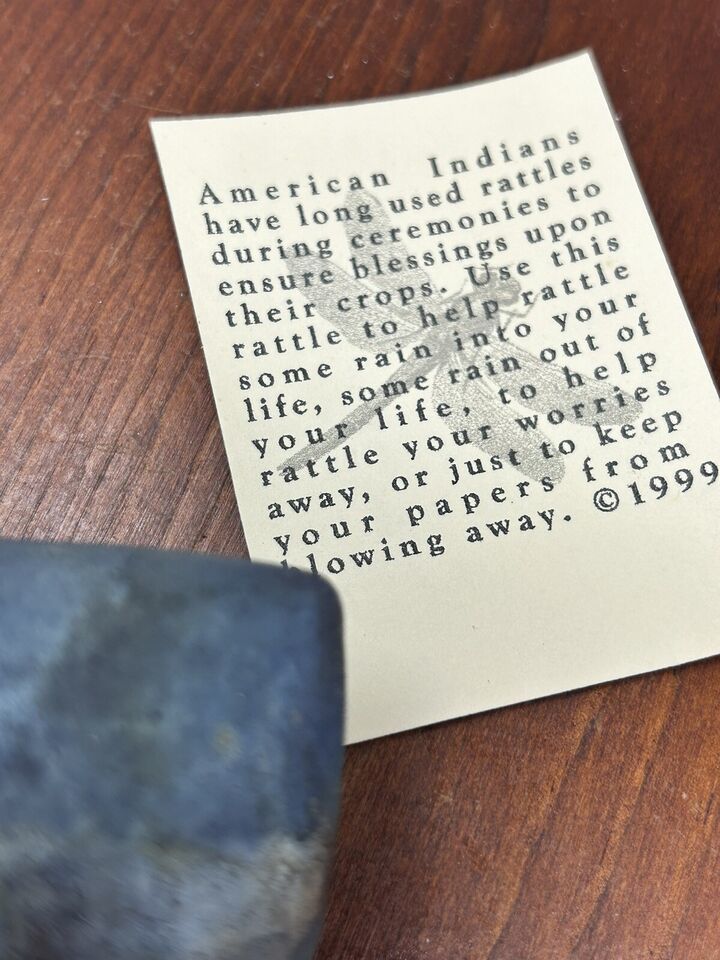 American Indians
have long used rattles
during ceremonies to
ensure blessings upon
their crops. Use this
rattle to help rattle
some rain into your
life, some rain out of
your life, to help
rattle your worries
away, or just to keep
your papers from
blowing away. ©1999